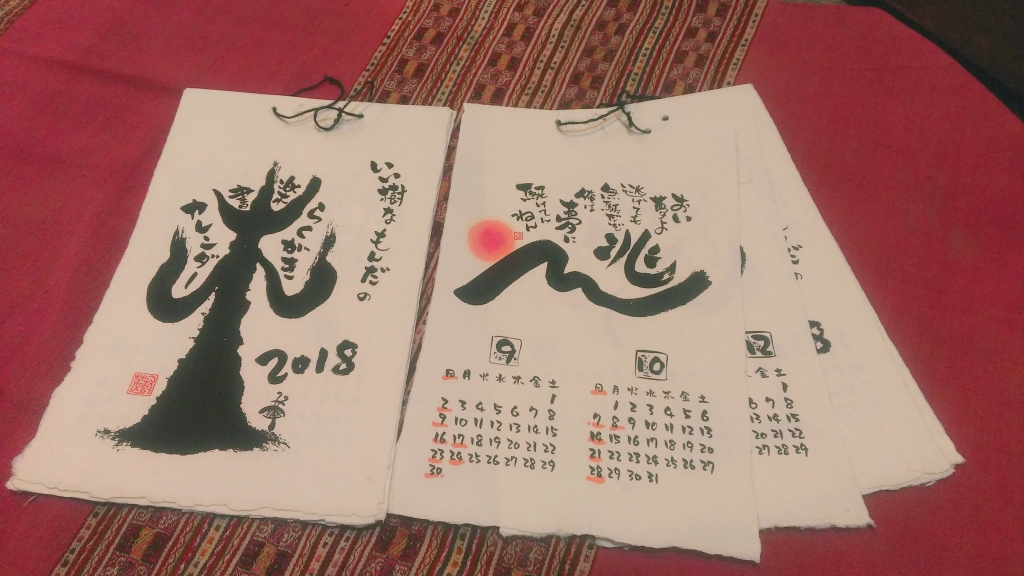 いい樹なもんだの
楽書
らくがき
カレンダー
2018
おい
夢よ
逃げても
無駄だぞ
俺は
夢に
賭けてん
ねん
逃
9
日月火水木金土
1
2 3 4 5 6 7 8
9 10 11 12 13 14 15
16 17 18 19 20 21 22
23 24 25 26 27 28 29
30
10
日月火水木金土
1 2 3 4 5 6
7 8 9 10 11 12 13
14 15 16 17 18 19 20
21 22 23 24 25 26 27
28 29 30 31
12
木金土
1
6 7 8
13 14 15
20 21 22
27 28 29
8